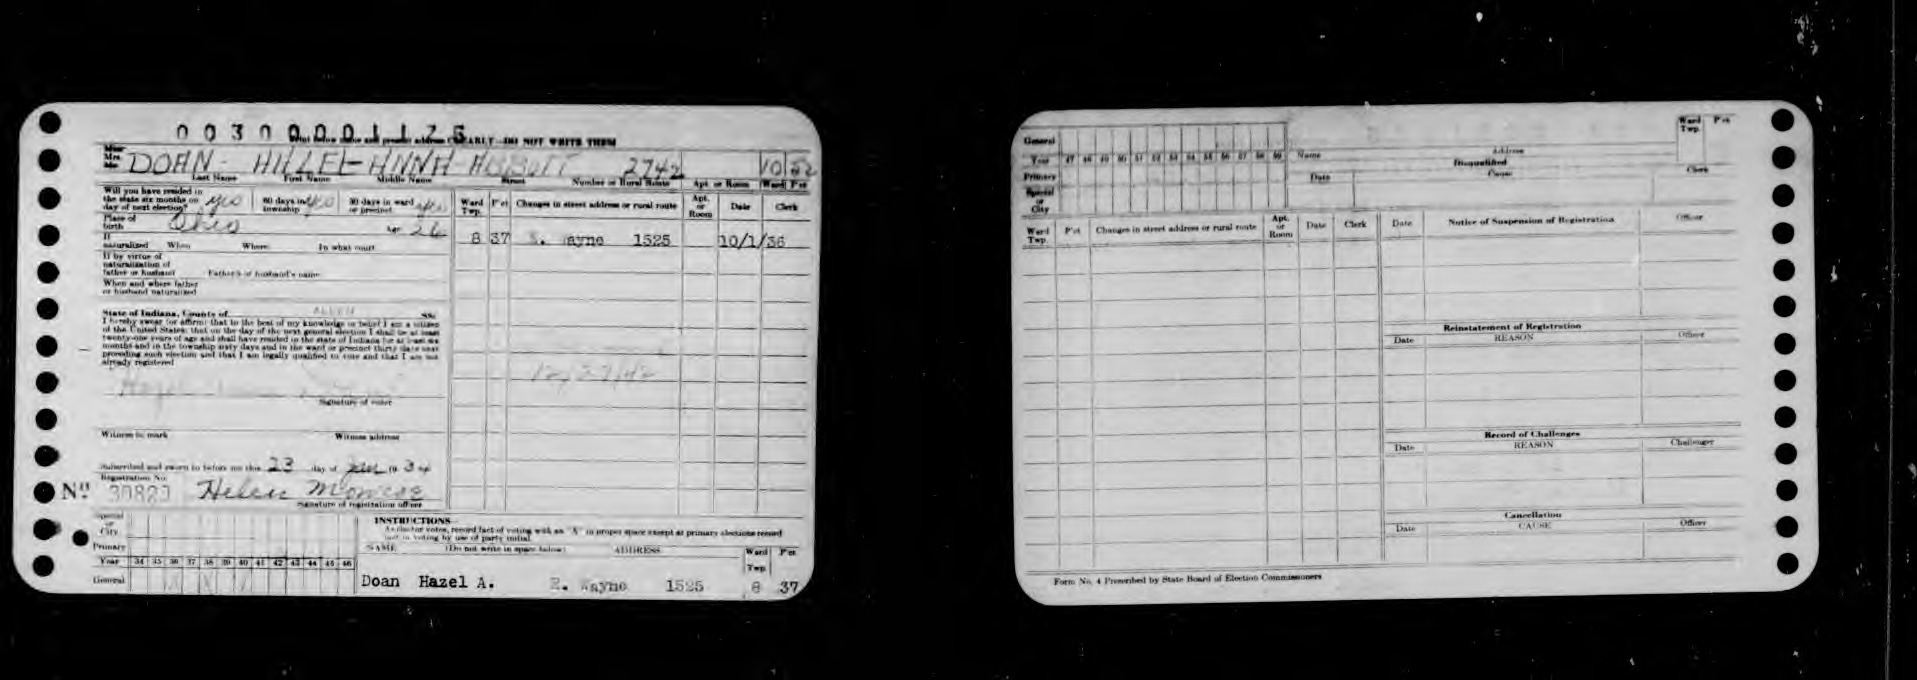 0030001125
EARLY—DO NOT WRITE THEM
Mrs. DOAN - ANNA ABBOTT 2742 10 52
Last Name First Name Middle Name Street Number or Rural Route Apt. or Room Ward P'ct
Will you have resided in the state six months on day of next election? yes 60 days in township yes 30 days in ward or precinct yes
Place of birth Ohio Age 26
If naturalized When Where In what court
If by virtue of naturalization of father or husband Father's or husband's name
When and where father or husband naturalized
State of Indiana, County of ALLEN SS:
I hereby swear (or affirm) that to the best of my knowledge or belief I am a citizen
of the United States; that on the day of the next general election I shall be at least
twenty-one years of age and shall have resided in the state of Indiana for at least six
months and in the township sixty days and in the ward or precinct thirty days next
preceding such election and that I am legally qualified to vote and that I am not
already registered
Signature of voter
Witness to mark Witness address
Subscribed and sworn to before me this 23 day of 193
Registration No.
No. Helen Monroe
Signature of registration officer
Ward Twp. P'ct Changes in street address or rural route Apt. or Room Date Clerk
8 37 Wayne 1525 10/1/36
12/27/42
Special or City
Primary
Year 34 35 36 37 38 39 40 41 42 43 44 45 46
General
INSTRUCTIONS—
As elector votes, record fact of voting with an "X" in proper space except at primary elections record
fact of voting by use of party initial.
NAME (Do not write in space below) ADDRESS Ward Twp. P'ct
Doan Hazel A. Wayne 1525 8 37
General
Year 47 48 49 50 51 52 53 54 55 56 57 58 59
Primary
Special or City
Name Address Ward Twp. P'ct
Disqualified
Date Cause Clerk
Ward Twp. P'ct Changes in street address or rural route Apt. or Room Date Clerk
Date Notice of Suspension of Registration Officer
Reinstatement of Registration
Date REASON Officer
Record of Challenges
Date REASON Challenger
Cancellation
Date CAUSE Officer
Form No. 4 Prescribed by State Board of Election Commissioners